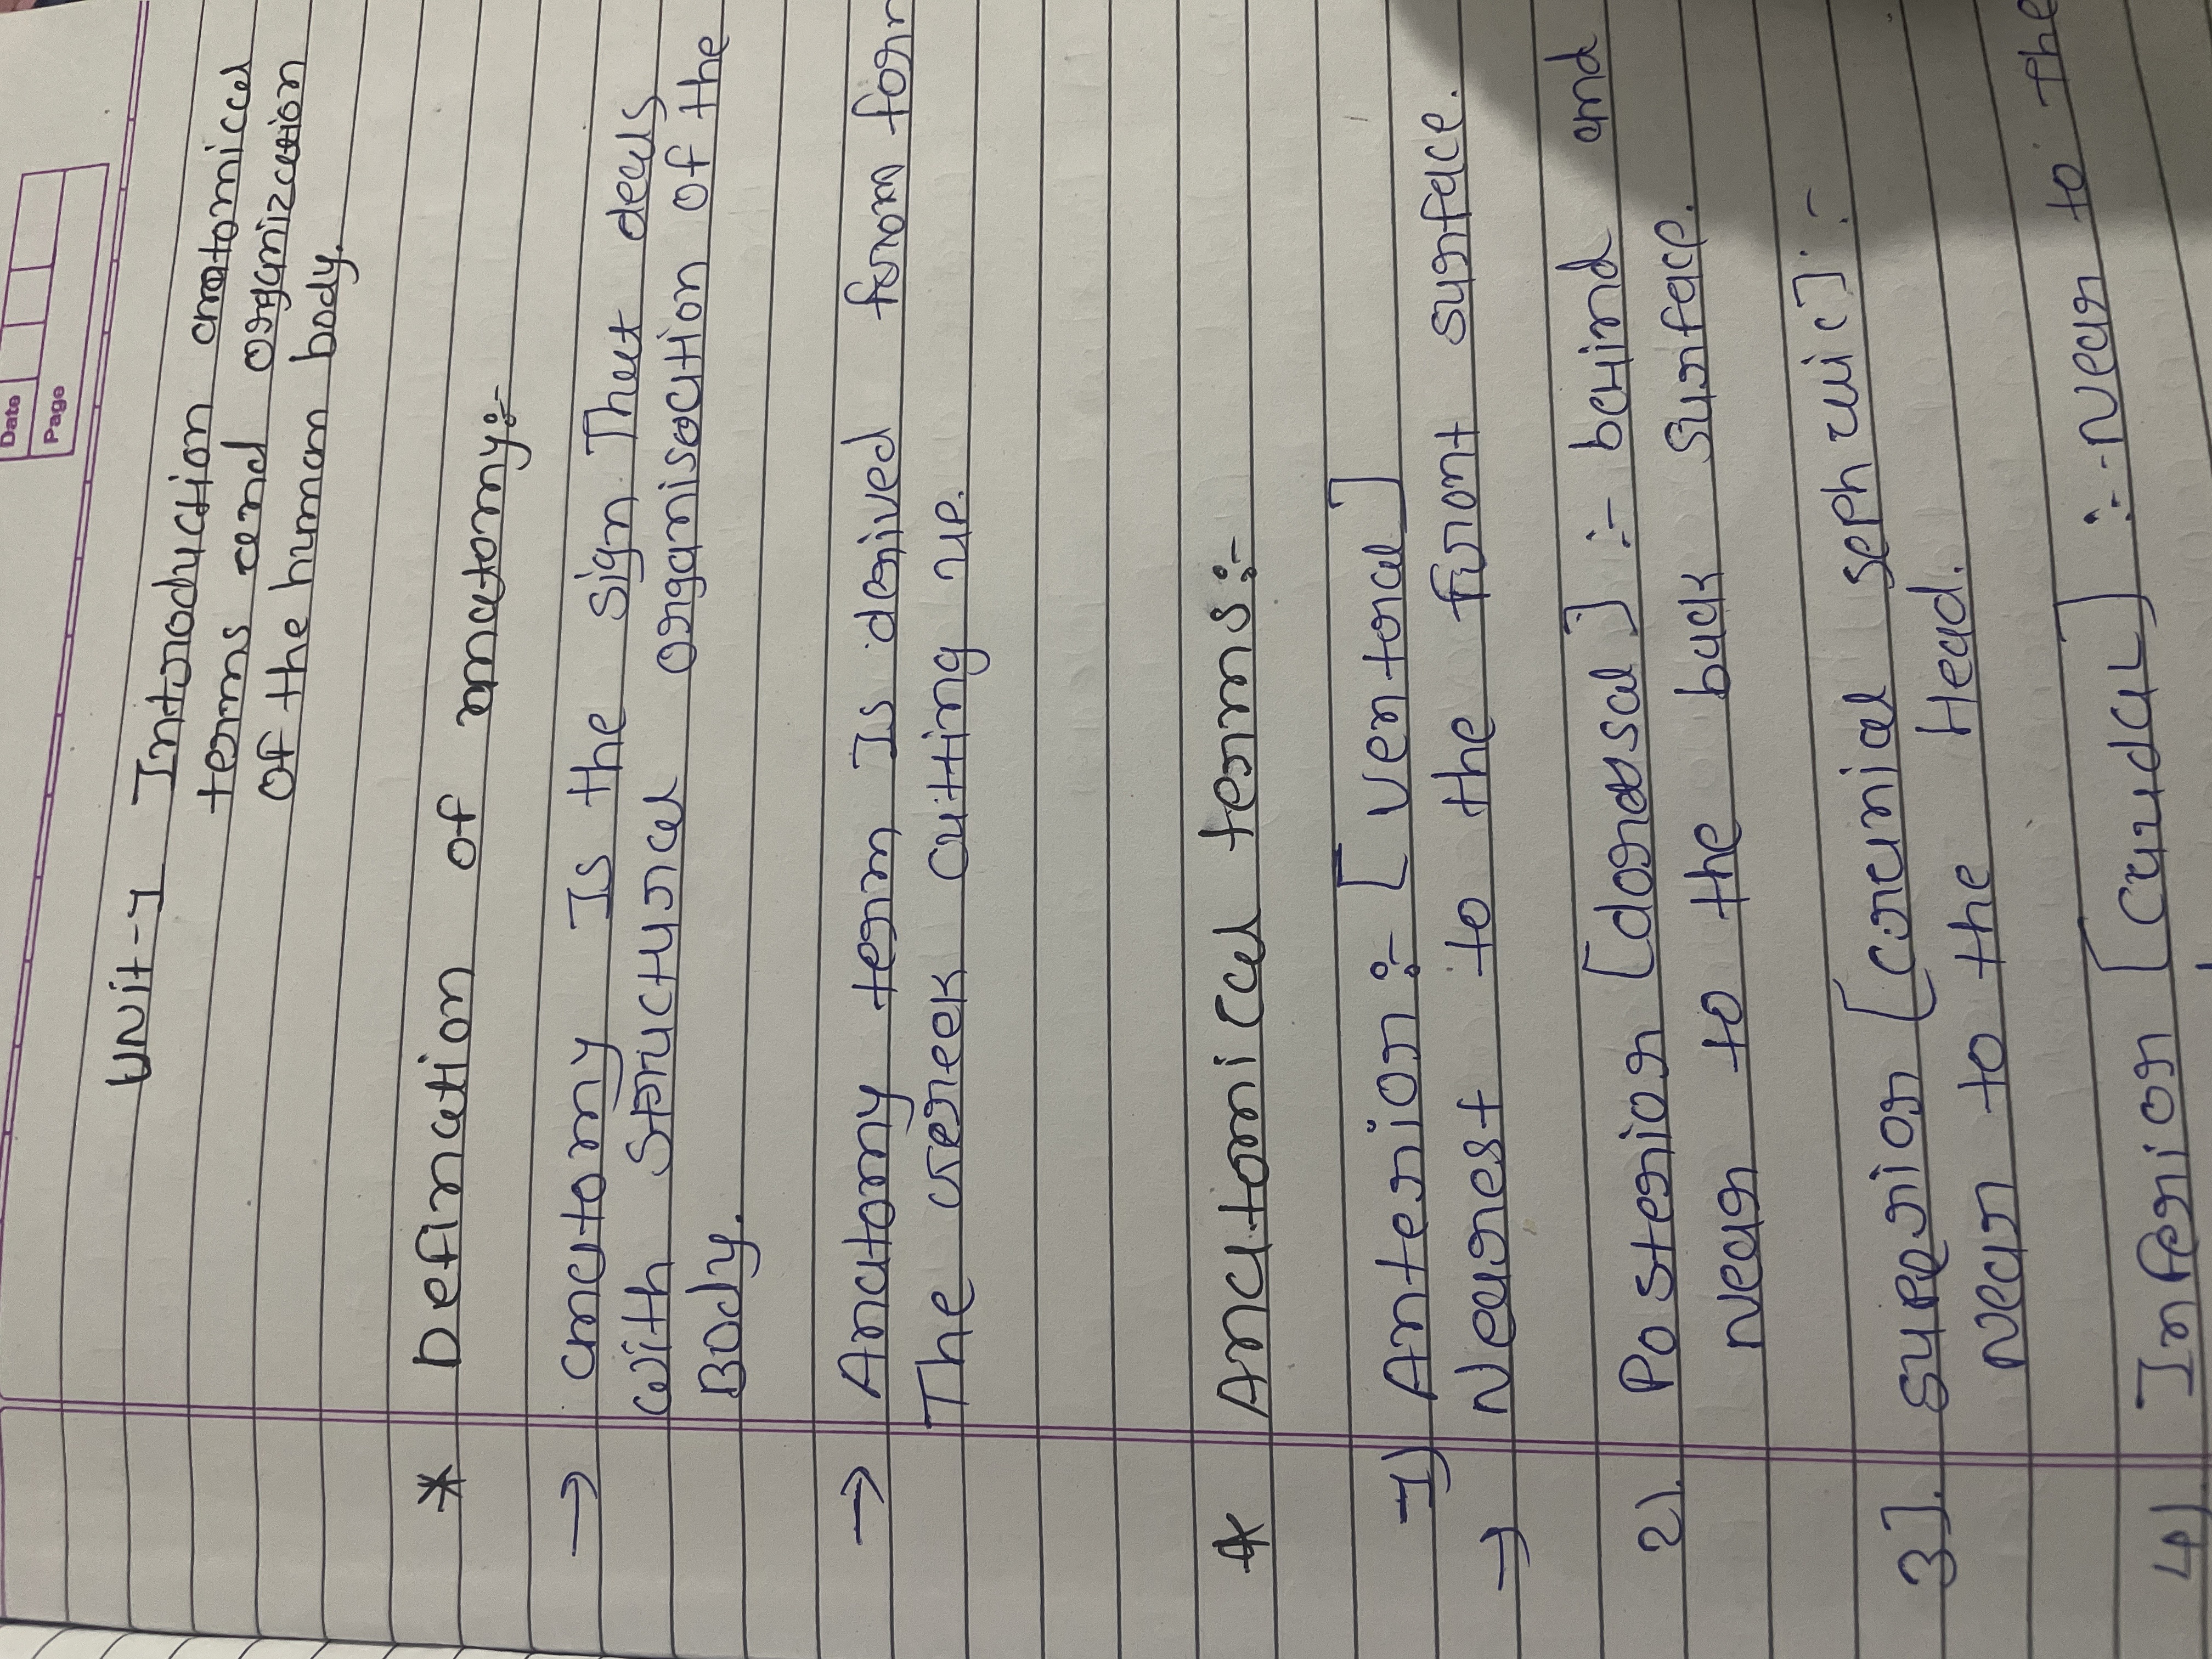 Date
Page
Unit-1 Introduction anatomical
terms and organization
of the human body.
* Defination of anatomy:-
→ anatomy Is the sign That deals
with structural organisation of the
Body.
→ Anatomy term Is derived from
The Greek cutting up.
* Anatomical terms:-
1) Anterior:- [ventral]
→ Nearest to the front surface.
2). Posterior [dorsal] :- behind and
Near to the back surface.
3]. superior [cranial] :-
Near to the Head.
4) Inferior [Caudal] :- Near to the